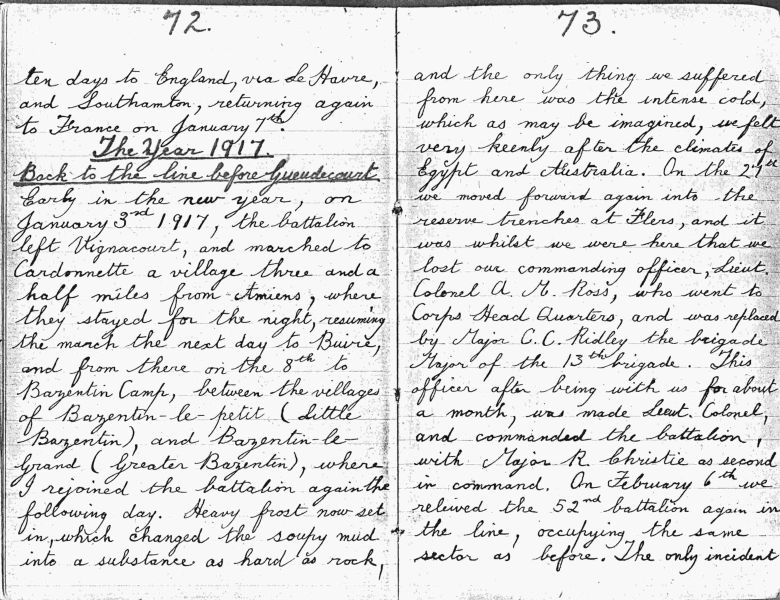 72.
ten days to England, via Le Havre,
and Southamton, returning again
to France on January 7th.
The Year 1917.
Back to the line before Gueudecourt
Early in the new year, on
January 3rd 1917, the battalion
left Vignacourt, and marched to
Cardonnette a village three and a
half miles from Amiens, where
they stayed for the night, resuming
the march the next day to Buire,
and from there on the 8th to
Bazentin Camp, between the villages
of Bazentin-le-petit (Little
Bazentin), and Bazentin-le-
Grand (Greater Bazentin), where
I rejoined the battalion again the
following day. Heavy frost now set
in, which changed the soupy mud
into a substance as hard as rock,
73.
and the only thing we suffered
from here was the intense cold,
which as may be imagined, we felt
very keenly after the climates of
Egypt and Australia. On the 21st
we moved forward again into the
reserve trenches at Flers, and it
was whilst we were here that we
lost our commanding officer, Lieut.
Colonel A. M. Ross, who went to
Corps Head Quarters, and was replaced
by Major C. C. Ridley the brigade
Major of the 13th brigade. This
officer after being with us for about
a month, was made Lieut. Colonel,
and commanded the battalion,
with Major R. Christie as second
in command. On February 6th we
releived the 52nd battalion again in
the line, occupying the same
sector as before. The only incident